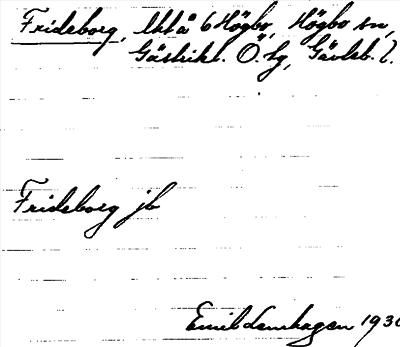 Fridsborg, lht å 6 Högbo, Högbo sn,
Gästrikl. Ö. tg, Gävleb. l.
Fridsborg jb
Emil Lennhagen 1930